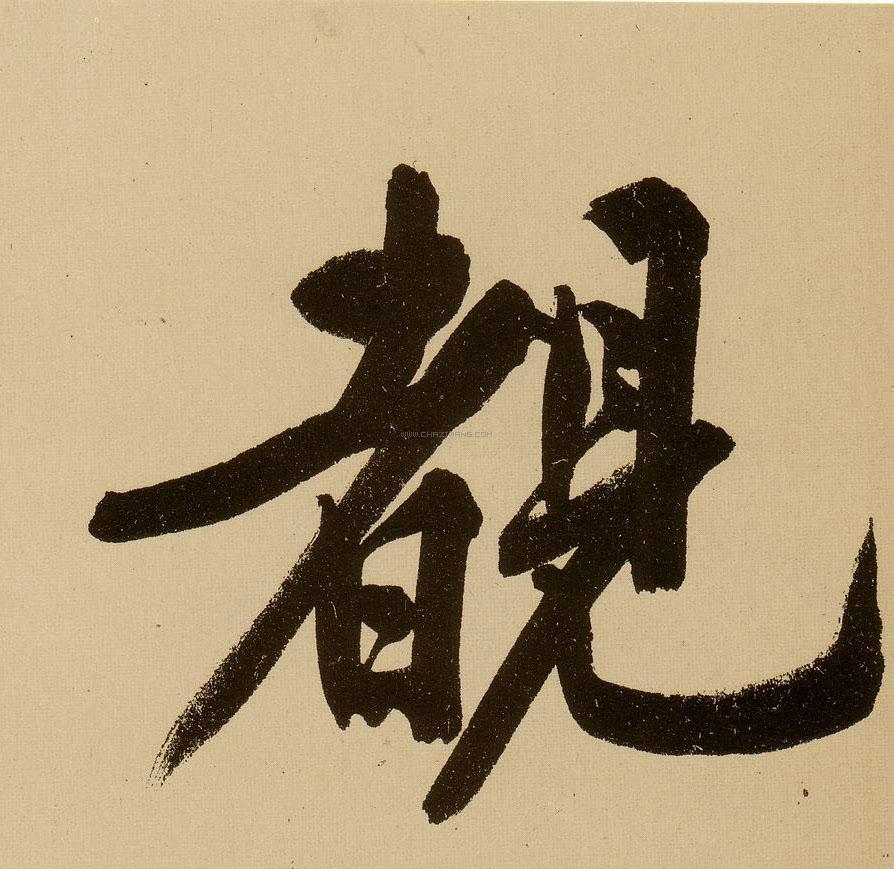 覩
WWW.CHAZIWANG.COM